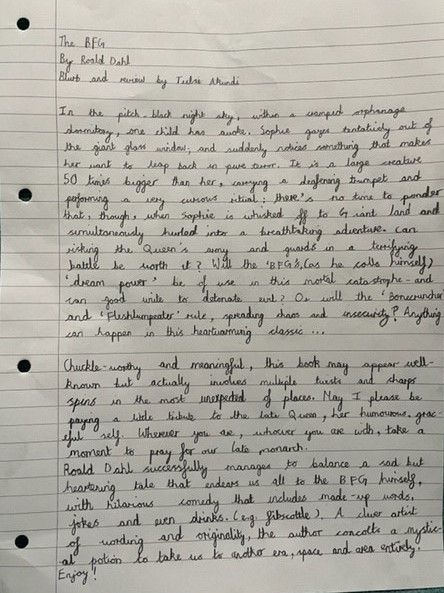 The BFG
By Roald Dahl
Blurb and review by Tulsi Akundi
In the pitch-black night sky, within a cramped orphanage
dormitory, one child has awoke. Sophie gazes tentatively out of
the giant glass window, and suddenly notices something that makes
her want to leap back in pure terror. It is a large creature
50 times bigger than her, carrying a deafening trumpet and
performing a very curious ritual; there's no time to ponder
that, though, when Sophie is whisked off to Giant land and
simultaneously hurled into a breathtaking adventure. Can
risking the Queen's army and guards in a terrifying
battle be worth it? Will the 'BFG's, (as he calls himself)
'dream power' be of use in this mortal catastrophe - and
can good unite to detonate evil? Or will the 'Bonecruncher'
and 'Fleshlumpeater' rule, spreading chaos and insecurity? Anything
can happen in this heartwarming classic ...
Chuckle-worthy and meaningful, this book may appear well-
known but actually involves multiple twists and sharp
spins in the most unexpected of places. May I please be
paying a little tribute to the late Queen, her humourous, grac-
eful self. Wherever you are, whoever you are with, take a
moment to pray for our late monarch.
Roald Dahl successfully manages to balance a sad but
heartening tale that endears us all to the BFG himself,
with hilarious comedy that includes made-up words,
jokes and even drinks. (e.g. fibscottle). A clever artist
of wording and originality, the author concocts a mystic-
al potion to take us to another era, space and area entirely.
Enjoy!